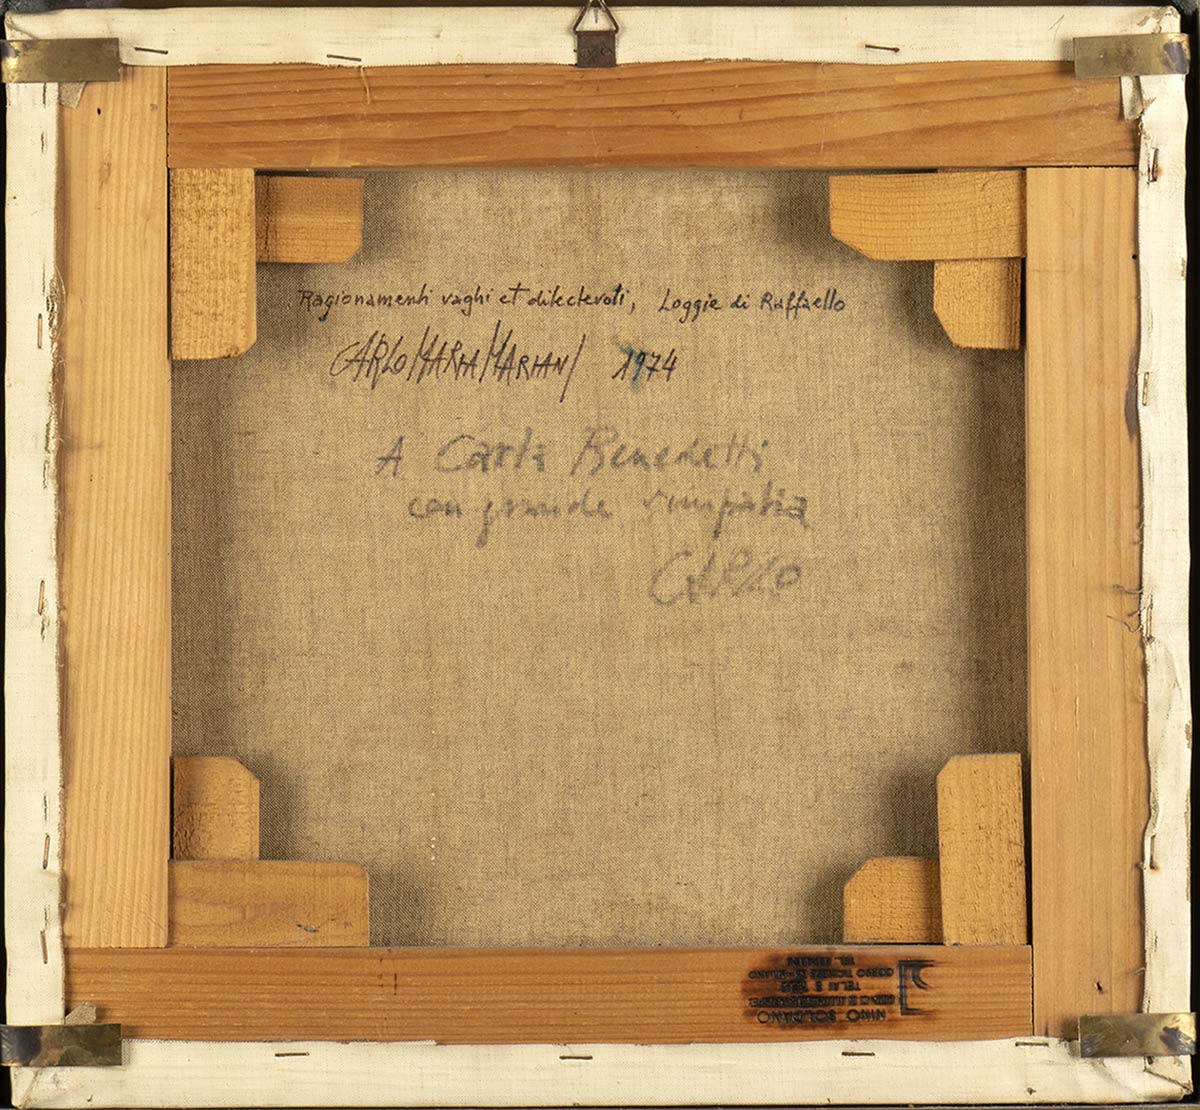 Ragionamenti vaghi et dilectevoli, Loggie di Raffaello
CARLO MARIA MARIANI 1974
A Carla Benedetti
con grande simpatia
CARLO
NINO SOLDANO
TELAI E
CORSO TICINESE MILANO
TEL.